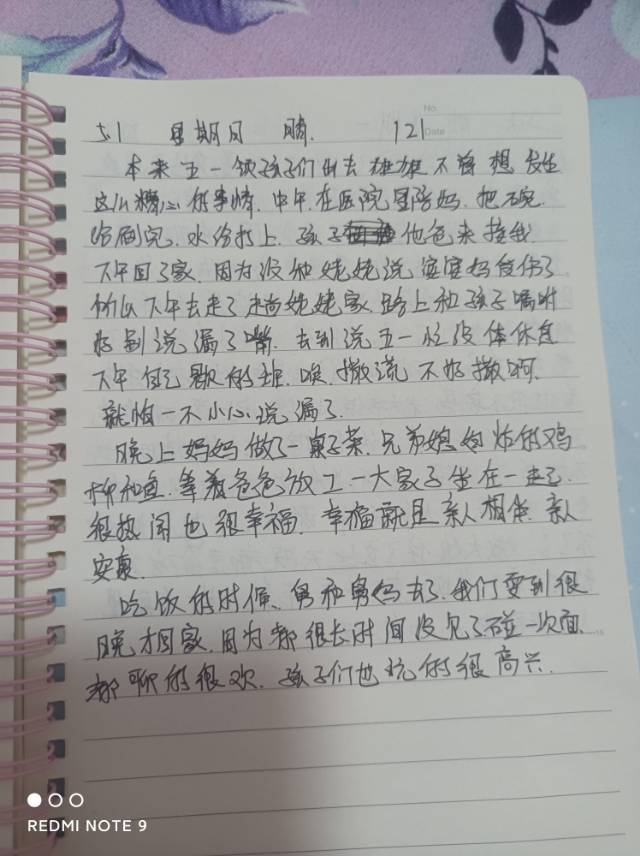 No.
Date
5.1 星期日 晴. 121
本来五一领孩子们出去 不曾想发生
这么糟心的事情.中午.在医院冒陪妈.把碗
给刷完.水给打上.孩子他爸来接我.
下午回了家.因为没和姥姥说 妈受伤了
所以下午去走了趟姥姥家.路上和孩子嘱咐
好别说漏了嘴.去到说五一忙没休息
下午自己歇的班.唉.撒谎不好撒啊.
就怕一不小心说漏了.
晚上妈妈做了一桌子菜.兄弟媳给炸的鸡
柳和鱼.等着爸爸放工一大家子坐在一起.
很热闹也很幸福.幸福就是亲人相伴.亲人
安康.
吃饭的时候、舅和舅妈去了.我们耍到很
晚才回家.因为都很长时间没见了碰一次面.
都聊的很欢.孩子们也玩的很高兴.
REDMI NOTE 9